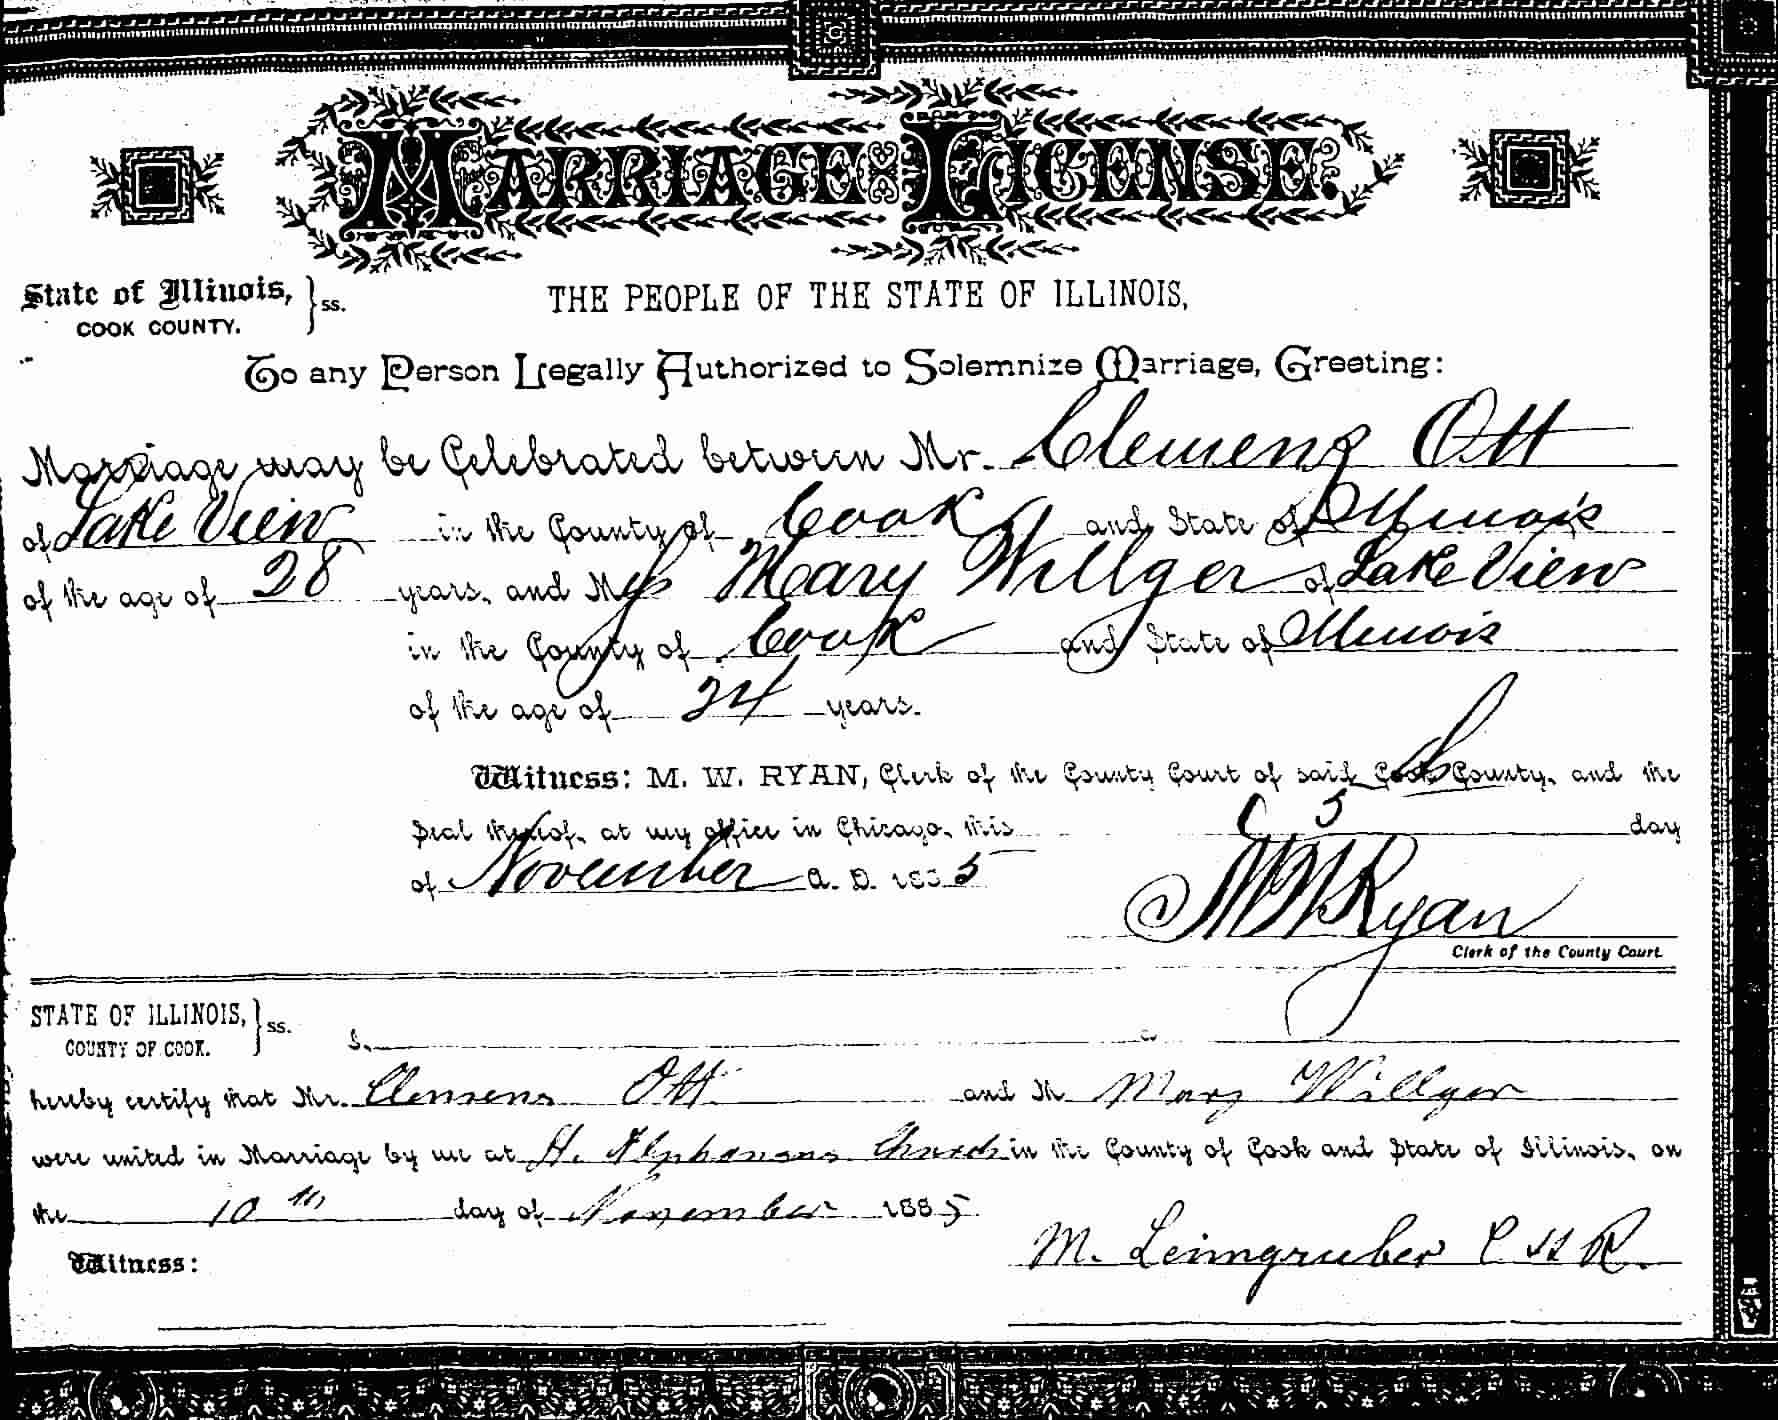 MARRIAGE LICENSE.
State of Illinois, } ss.
COOK COUNTY.
THE PEOPLE OF THE STATE OF ILLINOIS,
To any Person Legally Authorized to Solemnize Marriage, Greeting:
Marriage may be Celebrated between Mr. Clemens Ott
of Lake View in the County of Cook and State of Illinois
of the age of 28 years, and Ms Mary Willger of Lake View
in the County of Cook and State of Illinois
of the age of 24 years.
Witness: M. W. RYAN, Clerk of the County Court of said Cook County, and the
Seal thereof, at my office in Chicago, this 5 day
of November A. D. 1885
M W Ryan
Clerk of the County Court.
STATE OF ILLINOIS, } ss.
COUNTY OF COOK.
I, a
hereby certify that Mr. Clemens Ott and M Mary Willger
were united in Marriage by me at St. Alphonsus Church in the County of Cook and State of Illinois, on
the 10th day of November 1885
M. Leimgruber C SS R.
Witness: